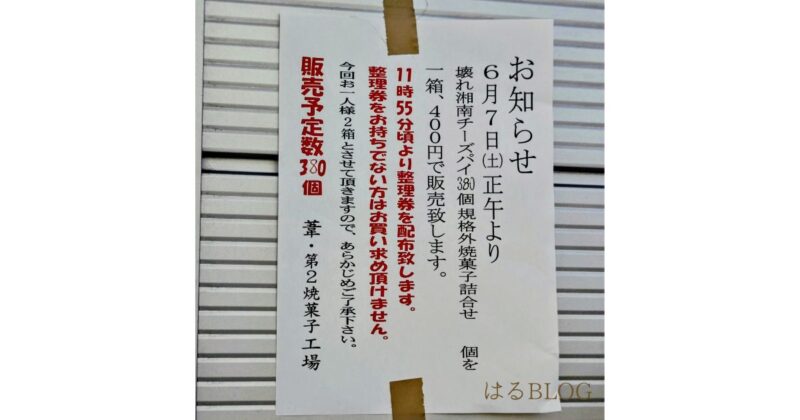 お知らせ
6月7日(土)正午より
壊れ湘南チーズパイ380個規格外焼菓子詰合せ　個を
一箱、400円で販売致します。
11時55分頃より整理券を配布致します。
整理券をお持ちでない方はお買い求め頂けません。
今回お一人様2箱とさせて頂きますので、あらかじめご了承下さい。
販売予定数380個
葦・第2焼菓子工場
はるBLOG